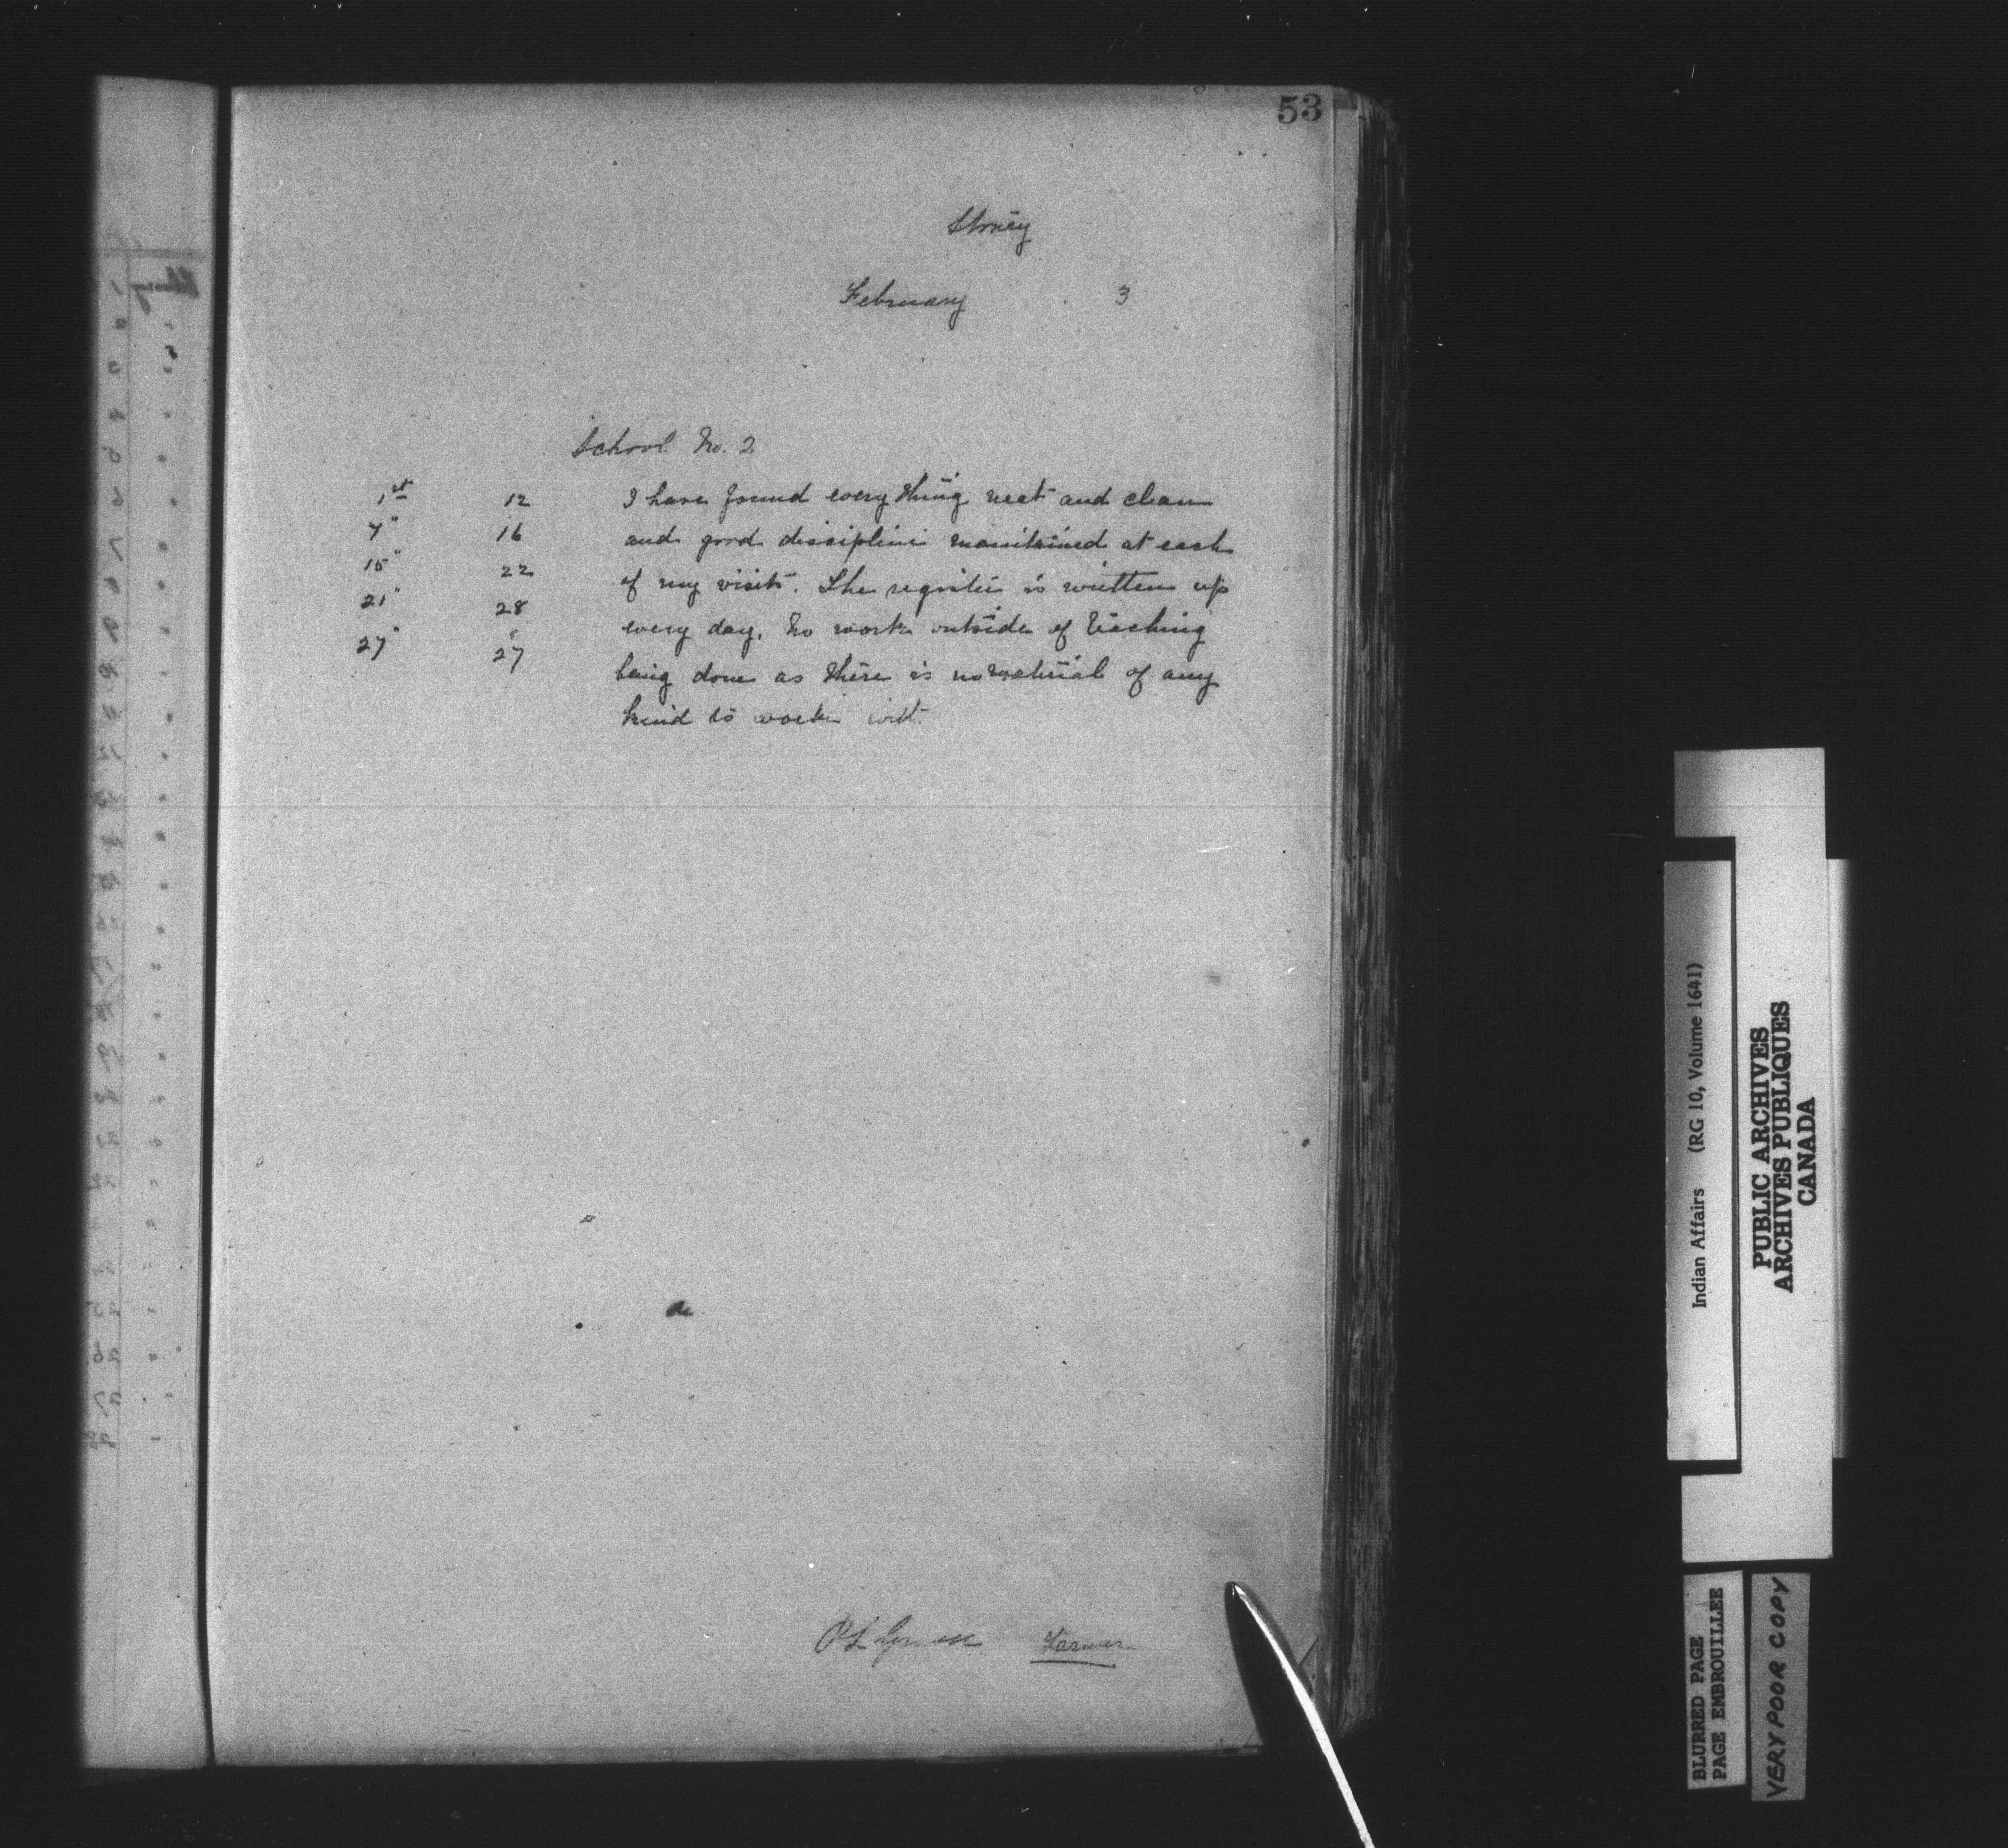 53
Stoney
February 3
School No. 2
1st 12 I have found everything neat and clean
7" 16 and good discipline maintained at each
15" 22 of my visits. The register is written up
21" 28 every day. No work outside of teaching
27" 27 being done as there is no material of any
kind to work with.
P L Farmer
Indian Affairs (RG 10, Volume 1641)
PUBLIC ARCHIVES
ARCHIVES PUBLIQUES
CANADA
BLURRED PAGE
PAGE EMBROUILLEE
VERY POOR COPY